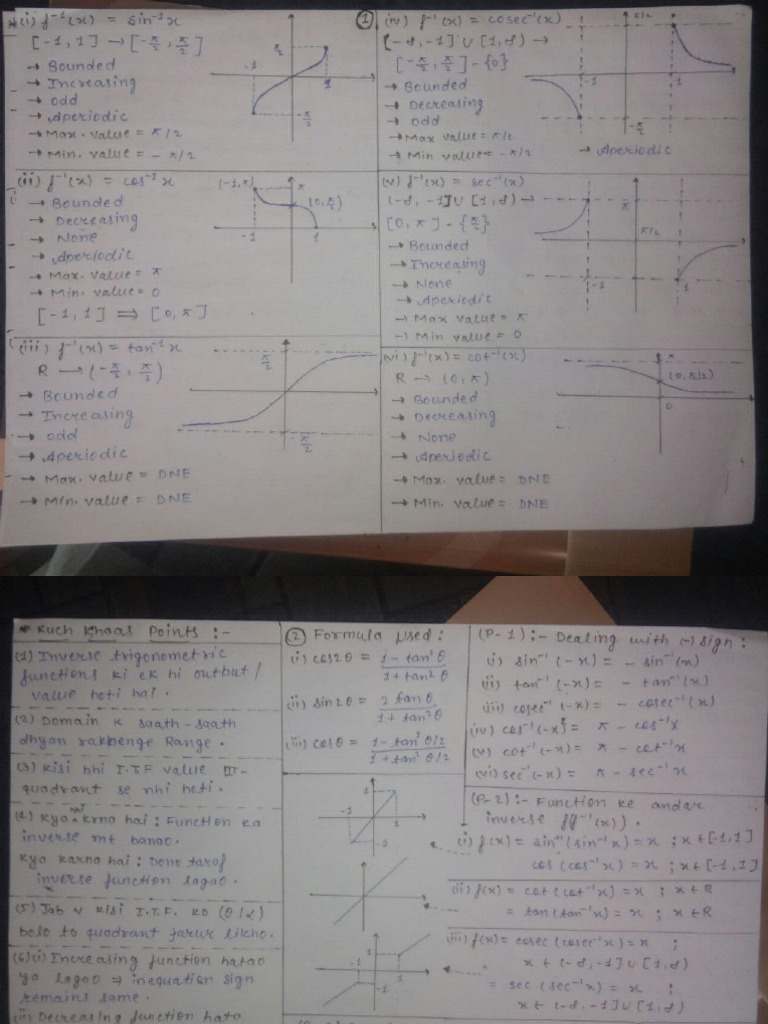 *(i) f⁻¹(x) = sin⁻¹x
[-1, 1] → [-π/2, π/2]
→ Bounded
→ Increasing
→ odd
→ Aperiodic
→ Max. value = π/2
→ Min. value = - π/2
π/2
-1
1
-π/2
①
(iv) f⁻¹(x) = cosec⁻¹(x)
(-∞, -1] U [1, ∞) →
[-π/2, π/2] - {0}
→ Bounded
→ Decreasing
→ odd
→ Max value = π/2
→ Min value = - π/2
→ Aperiodic
π/2
-1
1
-π/2
(ii) f⁻¹(x) = cos⁻¹x
→ Bounded
→ Decreasing
→ None
→ Aperiodic
→ Max. value = π
→ Min. value = 0
[-1, 1] ⟹ [0, π]
(-1, π)
π
(0, π/2)
-1
1
(v) f⁻¹(x) = sec⁻¹(x)
(-∞, -1] U [1, ∞) →
[0, π] - {π/2}
→ Bounded
→ Increasing
→ None
→ Aperiodic
→ Max value = π
→ Min value = 0
π
π/2
-1
1
(iii) f⁻¹(x) = tan⁻¹x
R → (-π/2, π/2)
→ Bounded
→ Increasing
→ odd
→ Aperiodic
→ Max. value = DNE
→ Min. value = DNE
π/2
-π/2
(vi) f⁻¹(x) = cot⁻¹(x)
R → (0, π)
→ Bounded
→ Decreasing
→ None
→ Aperiodic
→ Max. value = DNE
→ Min. value = DNE
π
(0, π/2)
0
* Kuch Khaas Points :-
(1) Inverse trigonometric
functions ki ek hi output/
value hoti hai.
(2) Domain k saath-saath
dhyan rakhenge Range.
(3) Kisi bhi I.T.F value III-
quadrant se nhi hoti.
(4) Kya nhi krna hai : Function ka
inverse mt banao.
Kya karna hai : Dono taraf
inverse function lagao.
(5) Jab v kisi I.T.F. ko (θ/α)
bolo to quadrant jarur likho.
(6)(i) Increasing function hatao
ya lagao → inequation sign
remains same.
(ii) Decreasing function hato
② Formula Used :
(i) cos2θ = 1 - tan²θ / 1 + tan²θ
(ii) sin2θ = 2 tanθ / 1 + tan²θ
(iii) cosθ = 1 - tan²θ/2 / 1 + tan²θ/2
1
-1
1
-1
1
-1
1
-1
(P-1) :- Dealing with (-) sign :
(i) sin⁻¹(-x) = - sin⁻¹(x)
(ii) tan⁻¹(-x) = - tan⁻¹(x)
(iii) cosec⁻¹(-x) = - cosec⁻¹(x)
(iv) cos⁻¹(-x) = π - cos⁻¹x
(v) cot⁻¹(-x) = π - cot⁻¹x
(vi) sec⁻¹(-x) = π - sec⁻¹x
(P-2) :- Function ke andar
inverse f(f⁻¹(x)).
(i) f(x) = sin(sin⁻¹x) = x ; x ∈ [-1, 1]
cos(cos⁻¹x) = x ; x ∈ [-1, 1]
(ii) f(x) = cot(cot⁻¹x) = x ; x ∈ R
= tan(tan⁻¹x) = x ; x ∈ R
(iii) f(x) = cosec(cosec⁻¹x) = x ;
x ∈ (-∞, -1] U [1, ∞)
= sec(sec⁻¹x) = x ;
x ∈ (-∞, -1] U [1, ∞)